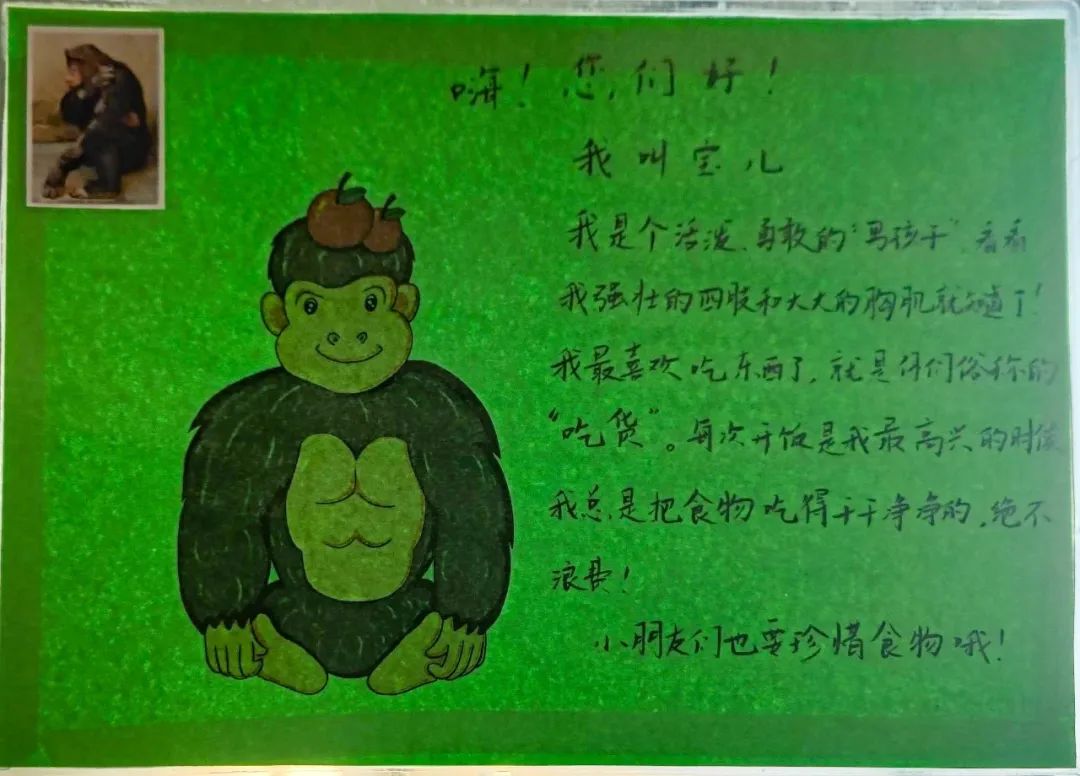 嗨！您们好！
我叫宝儿
我是个活泼、勇敢的“男孩子”，看看
我强壮的四肢和大大的胸肌就知道了！
我最喜欢吃东西了，就是你们俗称的
“吃货”。每次开饭是我最高兴的时候
我总是把食物吃得干干净净的，绝不
浪费！
小朋友们也要珍惜食物哦！